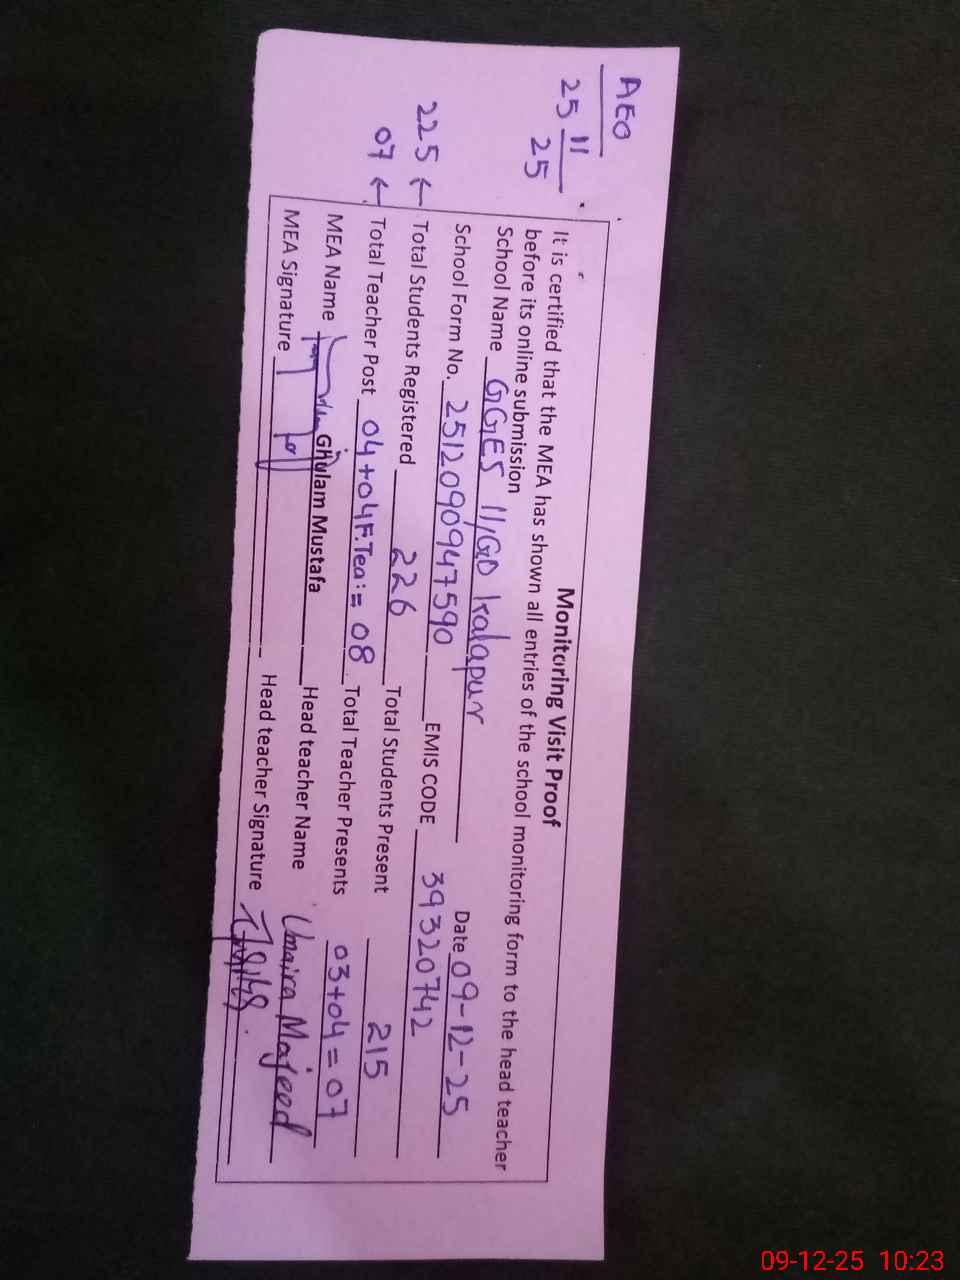 AEO
25 11
25
Monitoring Visit Proof
It is certified that the MEA has shown all entries of the school monitoring form to the head teacher
before its online submission
School Name GGES 11/GD Kalapur Date 09-12-25
School Form No. 251209094759​0 EMIS CODE 39320742
225 ← Total Students Registered 226 Total Students Present 215
07 ← Total Teacher Post 04+04F.Tea:= 08 Total Teacher Presents 03+04=07
MEA Name Ghulam Mustafa Head teacher Name Umaira Majeed
MEA Signature Head teacher Signature
09-12-25 10:23